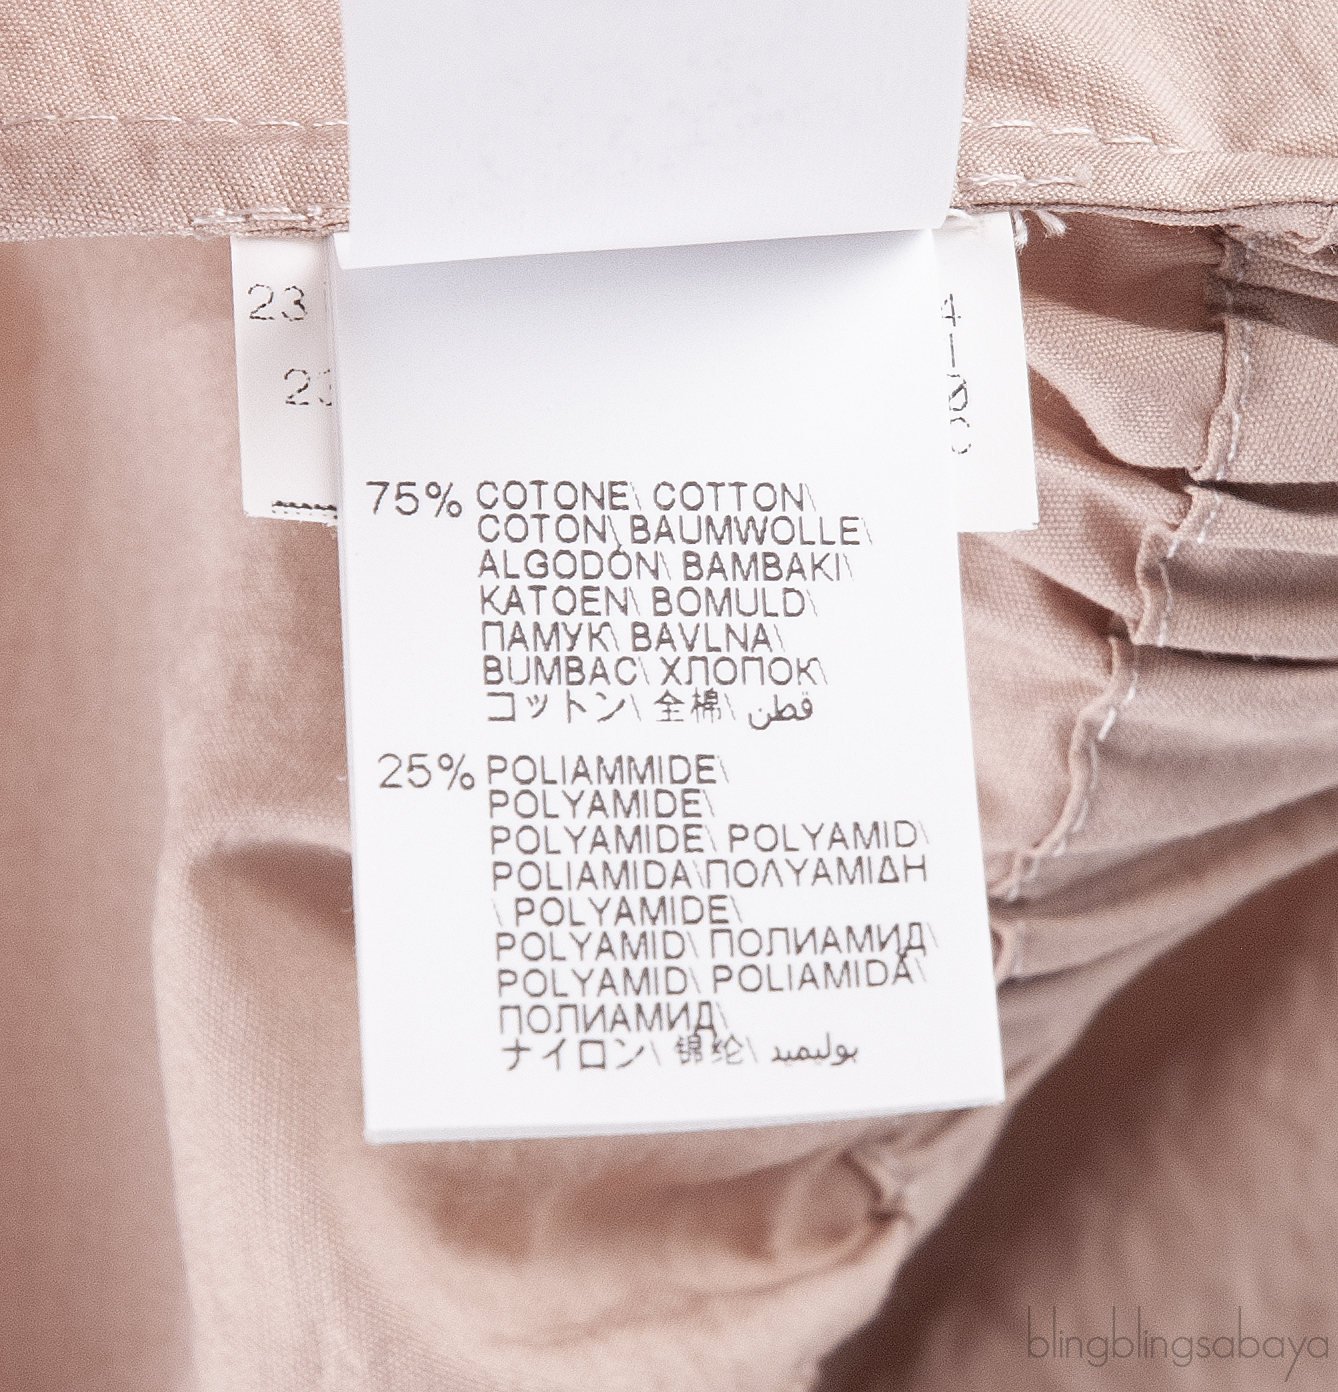 23
23
4
1
0
75% COTONE\ COTTON\
COTON\ BAUMWOLLE\
ALGODÓN\ BAMBAKI\
KATOEN\ BOMULD\
ПАМУК\ BAVLNA\
BUMBAC\ ХЛОПОК\
コットン\ 全棉\ قطن
25% POLIAMMIDE\
POLYAMIDE\
POLYAMIDE\ POLYAMID\
POLIAMIDA\ΠΟΛΥΑΜΙΔΗ
\ POLYAMIDE\
POLYAMID\ ПОЛИАМИД\
POLYAMID\ POLIAMIDA\
ПОЛИАМИД\
ナイロン\ 锦纶\ بوليميد
blingblingsabaya